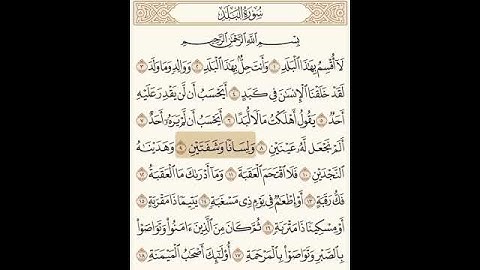 سُورَةُ الْبَلَدِ
بِسْمِ اللَّهِ الرَّحْمَٰنِ الرَّحِيمِ
لَآ أُقْسِمُ بِهَٰذَا الْبَلَدِ ١ وَأَنتَ حِلٌّ بِهَٰذَا الْبَلَدِ ٢ وَوَالِدٍ وَمَا وَلَدَ ٣
لَقَدْ خَلَقْنَا الْإِنسَٰنَ فِي كَبَدٍ ٤ أَيَحْسَبُ أَن لَّن يَقْدِرَ عَلَيْهِ
أَحَدٌ ٥ يَقُولُ أَهْلَكْتُ مَالًا لُّبَدًا ٦ أَيَحْسَبُ أَن لَّمْ يَرَهُۥٓ أَحَدٌ ٧
أَلَمْ نَجْعَل لَّهُۥ عَيْنَيْنِ ٨ وَلِسَانًا وَشَفَتَيْنِ ٩ وَهَدَيْنَٰهُ
النَّجْدَيْنِ ١٠ فَلَا اقْتَحَمَ الْعَقَبَةَ ١١ وَمَآ أَدْرَىٰكَ مَا الْعَقَبَةُ ١٢
فَكُّ رَقَبَةٍ ١٣ أَوْ إِطْعَٰمٌ فِي يَوْمٍ ذِي مَسْغَبَةٍ ١٤ يَتِيمًا ذَا مَقْرَبَةٍ ١٥
أَوْ مِسْكِينًا ذَا مَتْرَبَةٍ ١٦ ثُمَّ كَانَ مِنَ الَّذِينَ ءَامَنُوا وَتَوَاصَوْا
بِالصَّبْرِ وَتَوَاصَوْا بِالْمَرْحَمَةِ ١٧ أُولَٰٓئِكَ أَصْحَٰبُ الْمَيْمَنَةِ ١٨